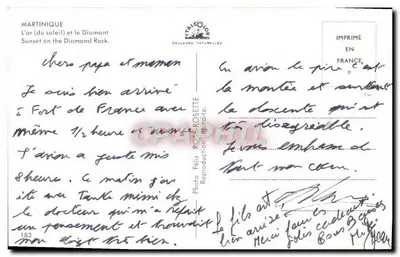 MARTINIQUE
L'or (du soleil) et le Diamant
Sunset on the Diamond Rock.
COULEURS NATURELLES
IMPRIMÉ
EN
FRANCE
Chers papa et maman
Je suis bien arrivé
à Fort de France avec
même 1/2 heure d'avance
L'avion a juste mis
8 heures. Ce matin j'ai
été avec Tante Mimi chez
le docteur qui m'a refait
un pansement et trouvait
mon doigt très bien.
183
Photo. Félix ROSE-ROSETTE
Reproduction interdite.
En avion le pire c'est
la montée et surtout
la descente qui est
très désagréable.
Je vous embrasse de
tout mon cœur.
Le fils est
bien arrivé
Merci pour les
jolis
Bons Baisers